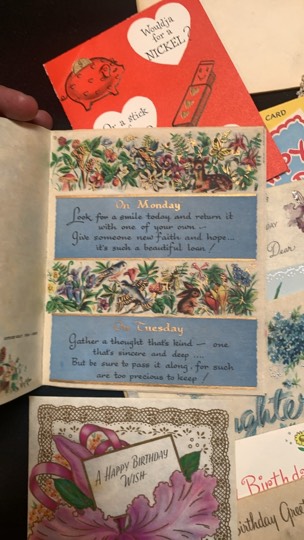 Wouldja
for a
NICKEL?
Or a stick
CARD
On Monday
Look for a smile today and return it
with one of your own –
Give someone new faith and hope...
it's such a beautiful loan!
On Tuesday
Gather a thought that's kind – one
that's sincere and deep ....
But be sure to pass it along, for such
are too precious to keep!
Dear
A HAPPY BIRTHDAY
WISH
Birthd
irthday Gree